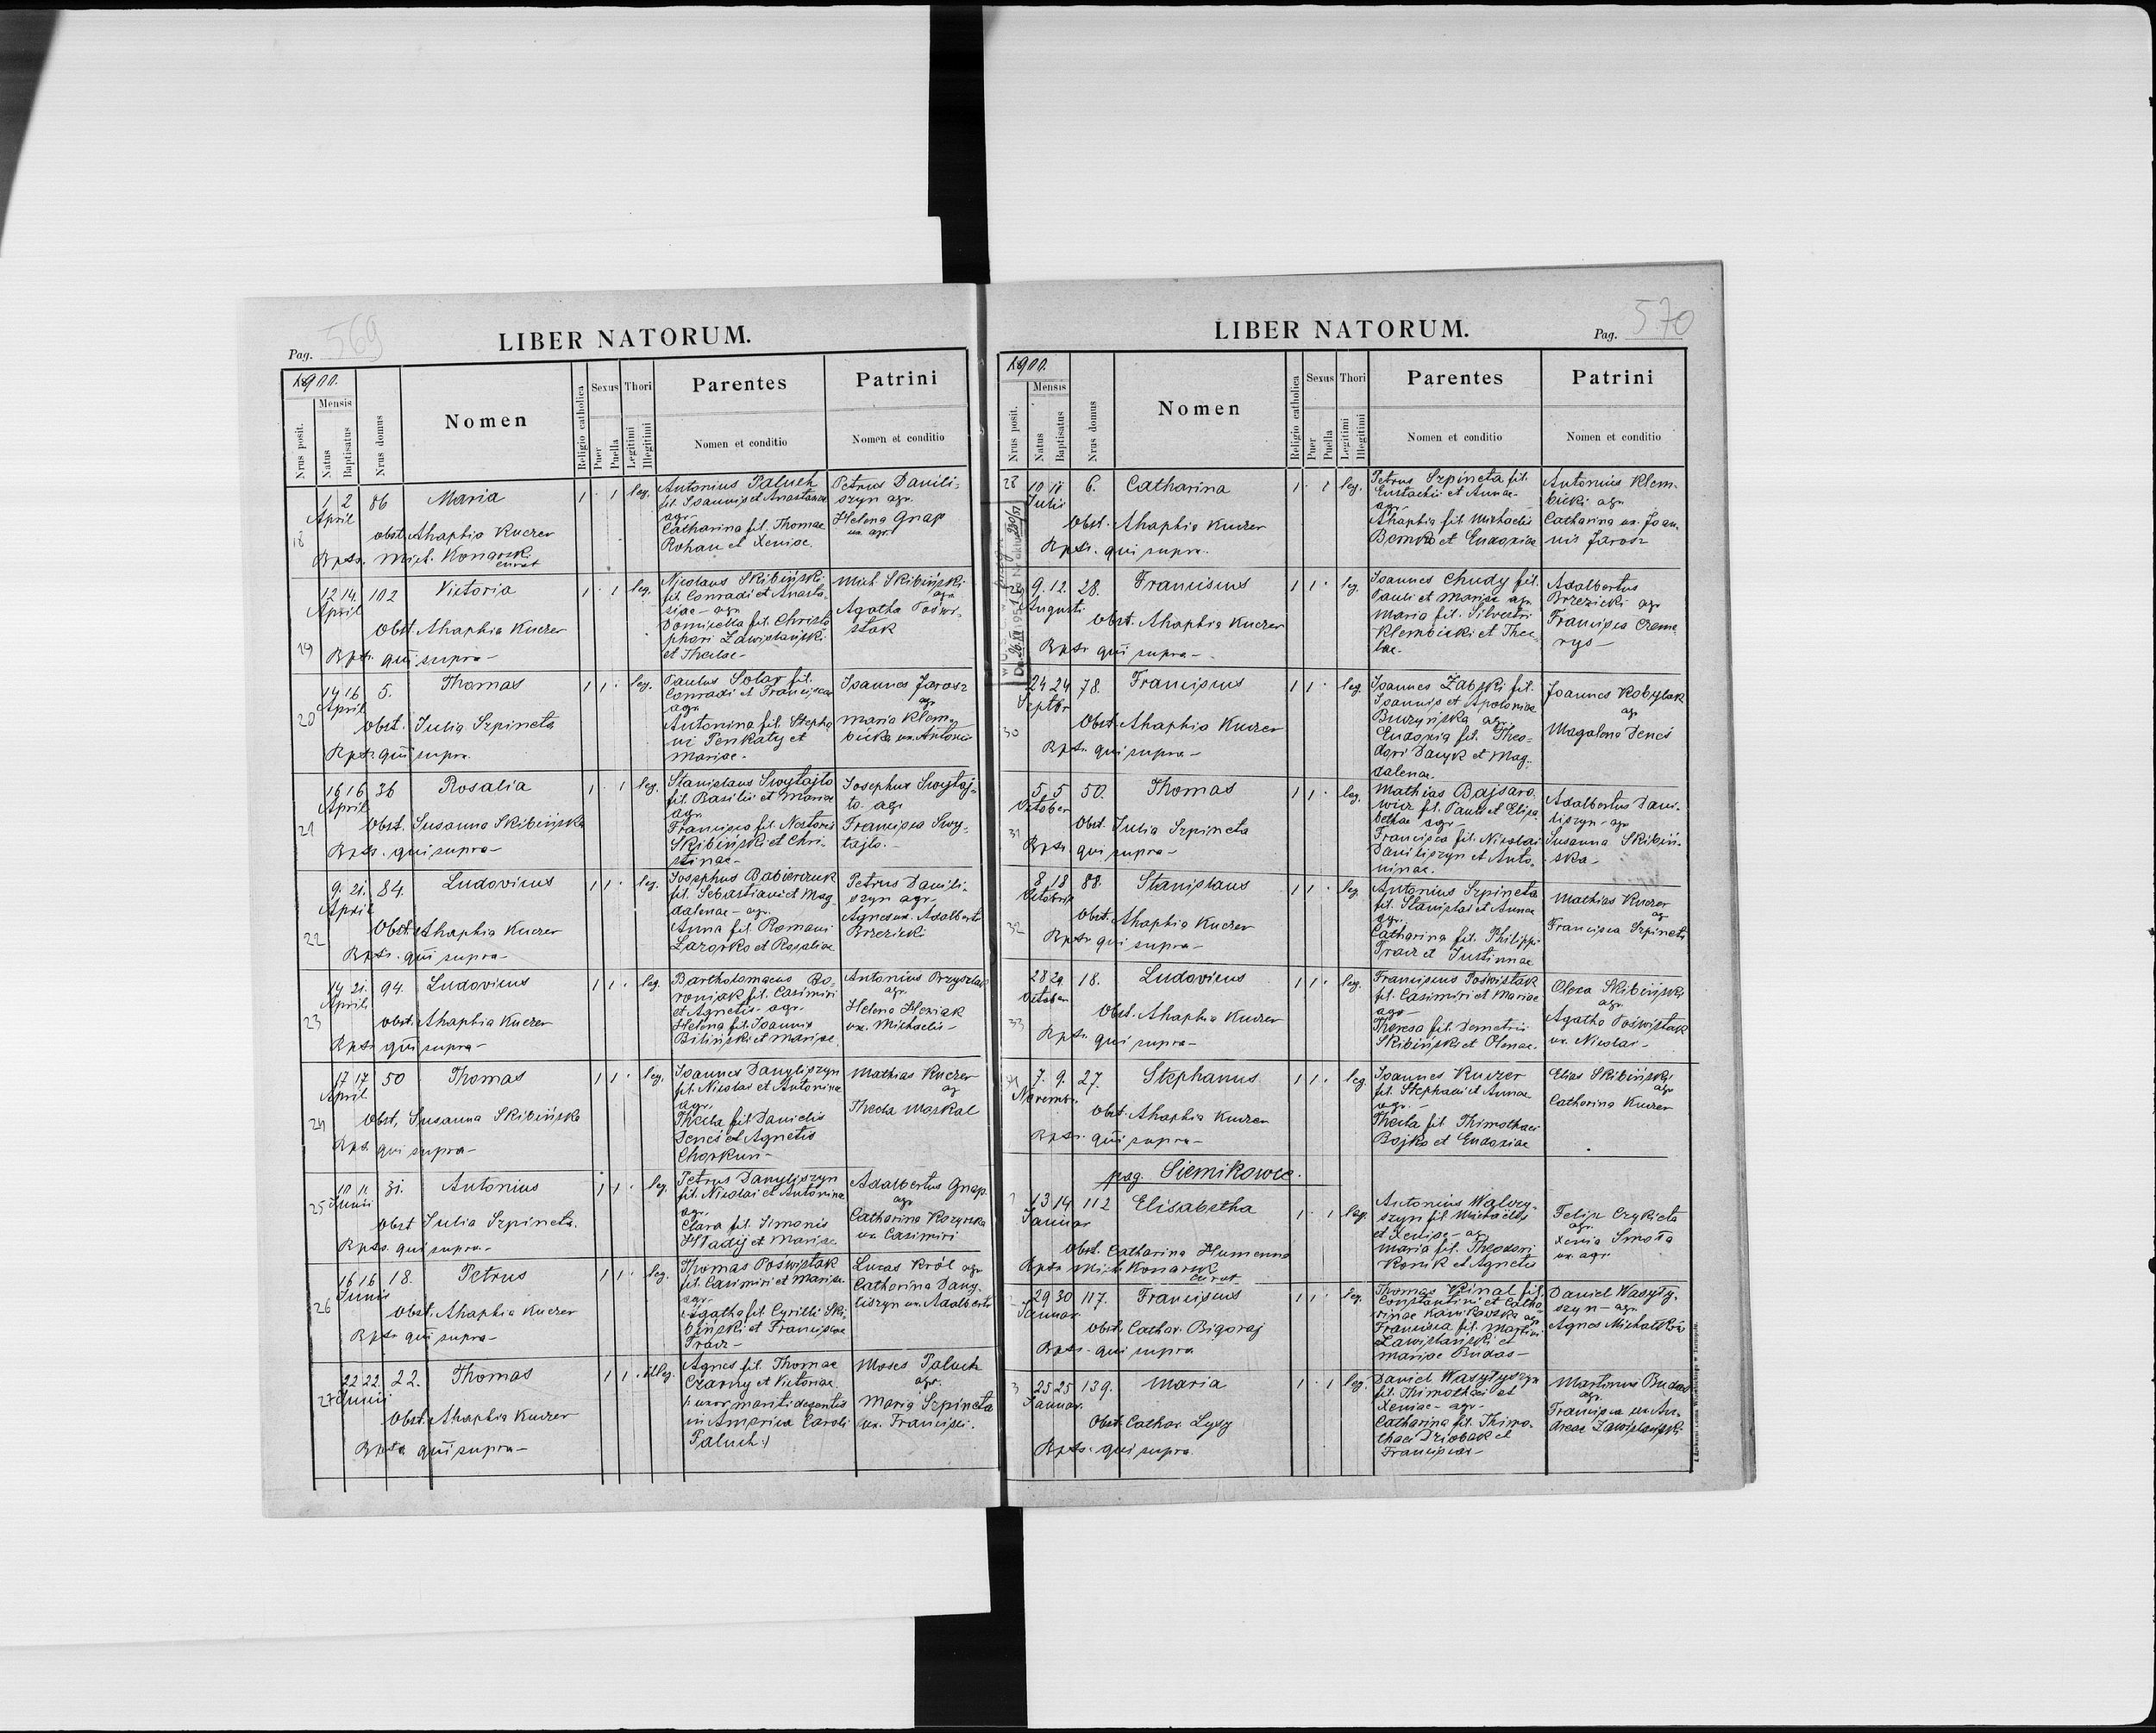 Pag. 569
LIBER NATORUM.
1900.
Nrus posit.
Mensis
Natus
Baptisatus
Nrus domus
Nomen
Religio catholica
Sexus
Puer
Puella
Thori
Legitimi
Illegitimi
Parentes
Nomen et conditio
Patrini
Nomen et conditio
18
1 2
April
86
Maria
1 · 1 leg.
obst. Ahaphia Kuczer
Bpts. Mich. Konarski
curat
Antonius Paluch
fil. Ioannis et Anastasiae
agr.
Catharina fil. Thomae
Rohau et Xeniae.
Petrus Danili-
szyn agr.
Helena Gnap
ux. agr.
19
12 14.
April
102
Victoria
1 · 1 leg.
Obst. Ahaphia Kuczer
Bpts. qui supra-
Nicolaus Skibiński
fil. Conradi et Anasta-
siae - agr.
Domicella fil. Christo
phori Zawislański
et Theclae-
Mich. Skibiński
agr.
Agatha Poswi-
stak
20
14 16
April
5.
Thomas
1 1 · leg.
Obst. Iulia Szpineta
Bpts. qui supra.
Paulus Solar fil.
Conradi et Franciscae
agr.
Antonina fil. Stepha
ni Penkaty et
Mariae.
Ioannes Jarosz
agr.
Maria Klem-
bicka ux. Antonii
21
16 16
April
36
Rosalia
1 · 1 leg.
Obst. Susanna Skibińska
Bpts. qui supra-
Stanislaus Swytajlo
fil. Basilii et Mariae
agr.
Francisca fil. Nestoris
Skibiński et Chri-
stinae-
Iosephus Swytaj-
lo agr
Francisca Swy-
tajlo.-
22
9. 21.
April
84.
Ludovicus
1 1 · leg.
Obst. Ahaphia Kuczer
Bpts. qui supra-
Iosephus Babiarczuk
fil. Sebastiani et Mag
dalenae - agr.
Anna fil. Romani
Lazorko et Rosaliae
Petrus Danili-
szyn agr.
Agnes ux. Adalberti
Brzezicki
23
14 21.
April
94.
Ludovicus
1 1 · leg.
obst. Ahaphia Kuczer
Bpts. qui supra-
Bartholomaeus Bo-
roniak fil. Casimiri
et Agnetis- agr.
Helena fil. Ioannis
Biliński et Mariae.
Antonius Przyszlak
agr.
Helena
ux. Michaelis-
24
17 17
April
50
Thomas
1 1 · leg.
Obst. Susanna Skibińska
Bpts. qui supra-
Ioannes Danyliszyn
fil. Nicolai et Antonina
agr.
Thecla fil. Danielis
Deneś et Agnetis
Chorkun-
Mathias Kuczer
ag
Thecla Moskal
25
10 11
Iunii
31.
Antonius
1 1 · leg.
Obst Iulia Szpineta.
Bpts. qui supra-
Petrus Danyliszyn
fil. Nicolai et Antonina
agr.
Clara fil. Simonis
Hladij et Mariae.
Adalbertus Gnap.
agr
Catharina Kozynska
ux Casimiri
26
16 16
Iunii
18.
Petrus
1 1 · leg.
Obst. Ahaphia Kuczer
Bpts qui supra-
Thomas Poświstak
fil. Casimiri et Mariae.
agr.
Agatha fil. Cyrilli Ski-
biński et Franciscae
Pracz-
Lucas Król agr
Catharina Dany-
liszyn ux. Adalberti
27
22 22.
Iunii
22.
Thomas
1 1 · illeg.
Obst. Ahaphia Kuczer
Bpts qui supra-
Agnes fil. Thomae
Czarny et Victoriae
/: uxor mariti degentis
in America Caroli
Paluch:/
Moses Paluch
agr.
Maria Szpineta
ux. Francisci.
LIBER NATORUM.
Pag. 570
1900.
Nrus posit.
Mensis
Natus
Baptisatus
Nrus domus
Nomen
Religio catholica
Sexus
Puer
Puella
Thori
Legitimi
Illegitimi
Parentes
Nomen et conditio
Patrini
Nomen et conditio
28
10 11
Iulii
6.
Catharina
1 · 1 leg.
Obst. Ahaphia Kuczer
Bpts. qui supra.
Petrus Szpineta fil.
Eustachii et Annae-
agr.
Ahaphia fil. Michaelis
Bomko et Eudoxiae
Antonius Klem-
bicki agr.
Catharina ux. Joan-
nis Jarosz
9. 12.
Augusti
28.
Franciscus
1 1 · leg.
Obst. Ahaphia Kuczer
Bpts qui supra-
Ioannes Chudy fil.
Pauli et Mariae agr.
Maria fil. Silvestri
Klembicki et Thec-
lae.
Adalbertus
Brzezicki agr
Francisca Czeme-
rys-
30
24 24
Septbr
78.
Franciscus
1 1 · leg
Obst. Ahaphia Kuczer
Bpts. qui supra-
Ioannes Zabski fil.
Ioannis et Apoloniae
Buczyńska agr.
Eudoxia fil. Theo-
dori Danyk et Mag-
dalenae.
Joannes Kobylak
agr
Magalena Deneś
31
5. 5
October
50.
Thomas
1 1 · leg.
Obst. Iulia Szpineta
Bpts. qui supra-
Mathias Bajsaro
wicz fil. Pauli et Elisa
bethae agr-
Francisca fil. Nicolai
Daniliszyn et Anto-
ninae.
Adalbertus Dani-
liszyn- agr
Susanna Skibiń-
ska-
32
8. 18
Octobris
88.
Stanislaus
1 1 · leg
Obst. Ahaphia Kuczer
Bpts qui supra-
Antonius Szpineta
fil. Stanislai et Annae
agr.
Catharina fil. Philippi
Pracz et Iustinnae
Mathias Kuczer
ag
Francisca Szpineta
33
28 29.
October
18.
Ludovicus
1 1 · leg.
Obst. Ahaphia Kuczer
Bpts. qui supra-
Franciscus Poświstak
fil. Casimiri et Mariae
agr-
Theresa fil. Demetrii
Skibiński et Olenae.
Olexa Skibiński
agr.
Agatha Poświstak
ux. Nicolai-
34
7. 9.
Novembr.
27.
Stephanus
1 1 · leg.
Obst. Ahaphia Kuczer
Bpts. qui supra-
Ioannes Kuczer
fil. Stephani et Annae
agr.-
Thecla fil. Thimothaei
Bojko et Eudoxiae
Elias Skibiński
agr
Catharina Kuczer
pag. Siemikowce.
1
13 14
Januar
112
Elisabetha
1 · 1 leg.
Obst. Catharina Humenna
Bpts Mich Konarski
curat
Antonius Walczy-
szyn fil. Michaelis
et Xeniae - ag
Maria fil. Theodori
Konik et Agnetis
Felix Czykieta
agr.
Xenia Smoła
ux. agr.
2
29 30
Januar.
117.
Franciscus
1 1 · leg.
Obst. Cathar. Bigoraj
Bpts. qui supra
Thomas Kinal fil.
Constantini et Catha-
rinae Kawkowska agr
Francisca fil. Martini
Zawislański et
Mariae Budas-
Daniel Wasyly-
szyn - agr.
Agnes
3
25 25
Januar.
139.
Maria
1 · 1 leg.
Obst. Cathar. Lysyj
Bpts. qui supra.
Daniel Wasylyszyn
fil. Thimothaei et
Xeniae - agr.
Catharina fil. Thimo-
thaei Dziobak et
Franciscae-
Martinus Budas
agr.
Francisca ux An-
dreae Zawislański